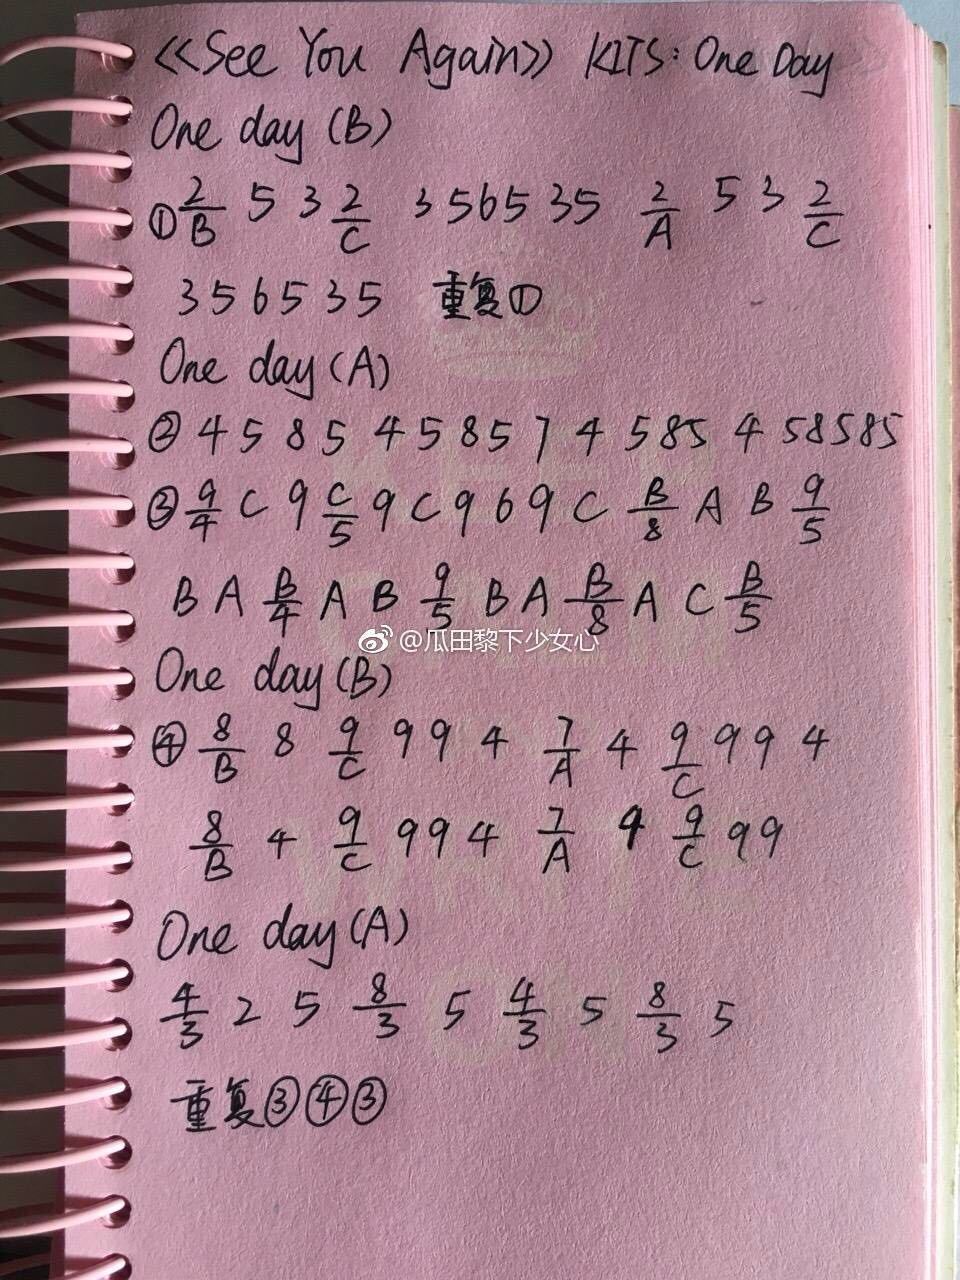 《See You Again》 KITS: One Day
One day (B)
① 2/B 5 3 2/C 3 5 6 5 3 5 2/A 5 3 2/C
3 5 6 5 3 5 重复①
One day (A)
② 4 5 8 5 4 5 8 5 7 4 5 8 5 4 5 8 5 8 5
③ 9/4 C 9 C/5 9 C 9 6 9 C B/8 A B 9/5
B A B/4 A B 9/5 B A B/8 A C B/5
@瓜田黎下少女心
One day (B)
④ 8/B 8 9/C 9 9 4 7/A 4 9/C 9 9 4
8/B 4 9/C 9 9 4 7/A 4 9/C 9 9
One day (A)
4/3 2 5 8/3 5 4/3 5 8/3 5
重复③④③